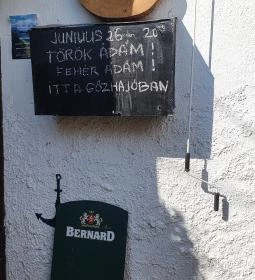 JUNIUS 26-án 20⁰⁰
TÖRÖK ÁDÁM!
FEHÉR ÁDÁM!
ITT A GŐZHAJÓBAN
BERNARD